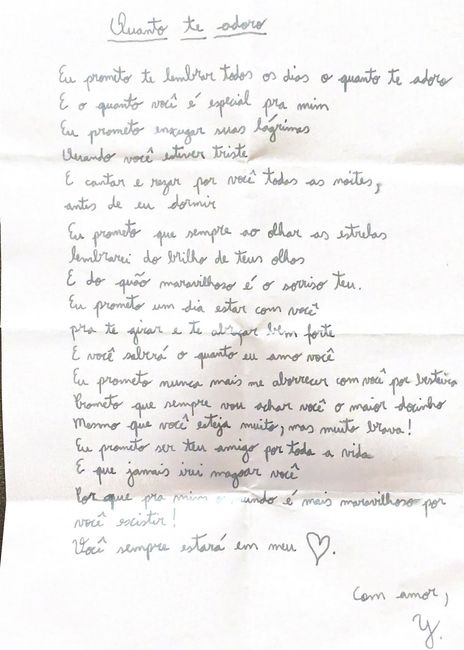 Quanto te adoro
Eu prometo te lembrar todos os dias o quanto te adoro
E o quanto você é especial pra mim
Eu prometo enxugar suas lágrimas
Quando você estiver triste
E cantar e rezar por você todas as noites,
antes de eu dormir
Eu prometo que sempre ao olhar as estrelas
lembrarei do brilho de teus olhos
E do quão maravilhoso é o sorriso teu.
Eu prometo um dia estar com você
pra te girar e te abraçar bem forte
E você saberá o quanto eu amo você
Eu prometo nunca mais me aborrecer com você por besteira
Prometo que sempre vou achar você o maior docinho
Mesmo que você esteja muito, mas muito brava!
Eu prometo ser teu amigo por toda a vida
E que jamais irei magoar você
Por que pra mim o mundo é mais maravilhoso por
você existir!
Você sempre estará em meu ♡.
Com amor,
Y.